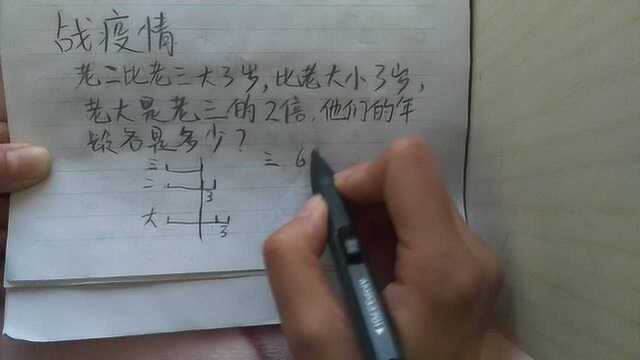 战疫情
老二比老三大3岁,比老大小3岁,
老大是老三的2倍.他们的年
龄各是多少?
三 三 6
二
3
大
3